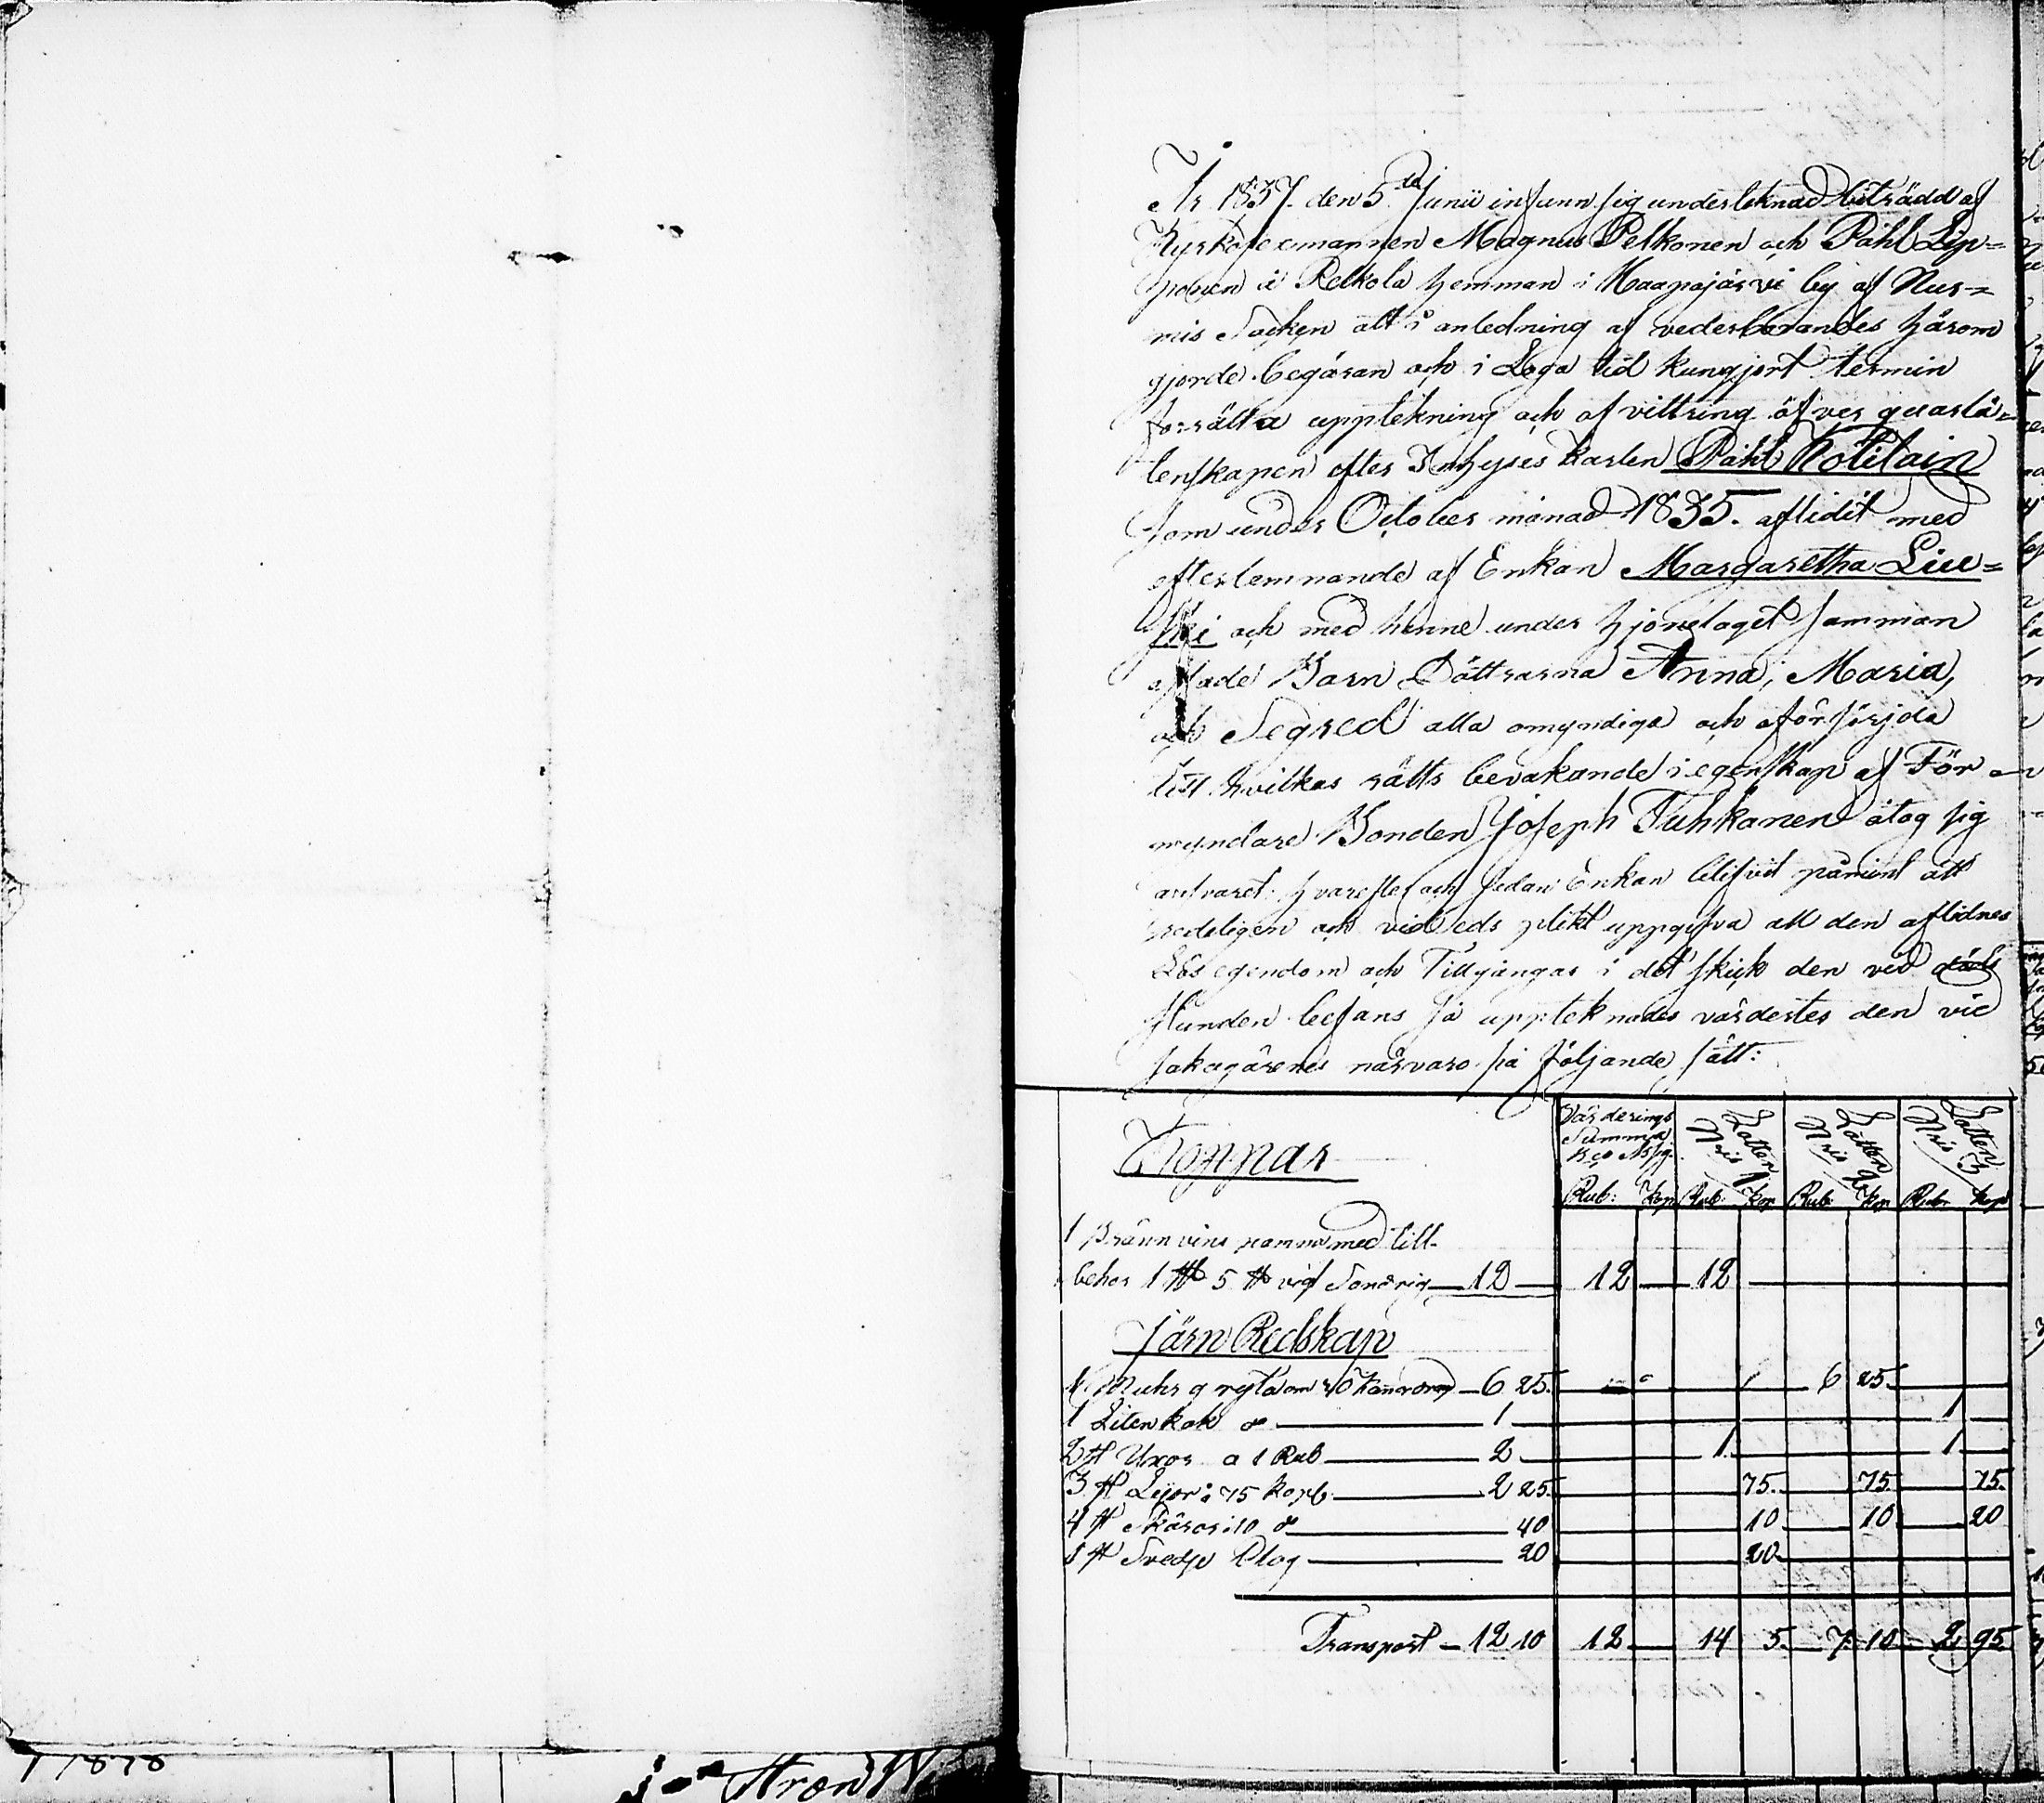 År 1837. den 5.te Junii infunn sig underteknad biträdd af
Kyrkosexmannen Magnus Pelkonen och Påhl Lip=
ponen i Relkola hemman i Haapajärvi by af Nur=
mis Socken att i anledning af vederbarandes härom
gjorde begäran och i Laga tid kungjort termin
förrätta upptekning och af vittring öfver quarlå=
tenskapen efter Inhyses karlen Påhl Kotilain
som under October månad 1835. aflidit med
efterlemnande af Enkan Margaretha Lius=
ki och med henne under hjonelaget samman
aflade Barn Döttrarna Anna, Maria,
och Segred alla omyndiga och oförsörjda
till hvilkas rätts bevakande i egenskap af För=
myndare Bonden Joseph Tuhkanen åtog sig
answaret: hvarefter och sedan Enkan blifvit påmint att
redeligen och vid eds plikt uppgifva all den aflidnes
Lös egendom och Tillgångar i det skick den ved döds
stunden befans så uppteknades värdertes den vid
sakägarenes närvaro på följande sätt:
Värderings Summa Lotten Nris 1 Lotten Nris 2 Lotten Nris 3
Koppar
Rub: Kop Rub: Kop Rub: Kop Rub: kop
1 Brännvins panna med till-
behor 1 5 12 12 12
Järn Redskap
1 Muhr gryta om 10 Kann 6 25 6 25
1 Liten kok 1 1
2 st Uxor a 1 Rub 2 1 1
3 st Lijor à 75 kop 2 25 75 75 75
4 st Skäror: 10 40 10 10 20
1 st Svedje Plog 20 20
Transport 12 10 12 14 5 7 10 2 95